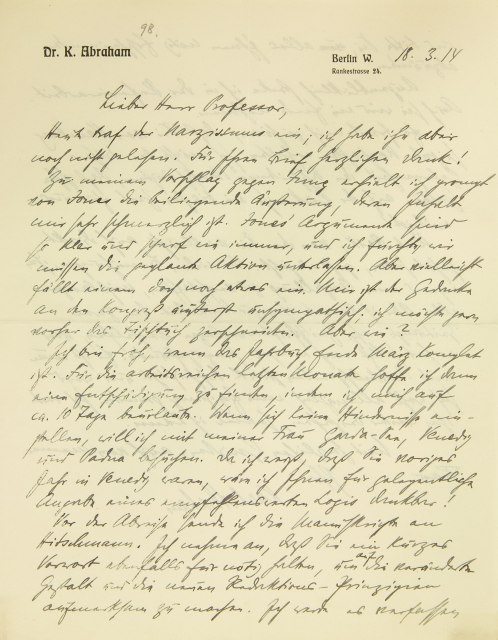 98.
Dr. K. Abraham
Berlin W. 18.3.14
Rankestrasse 24.
Lieber Herr Professor,
Heute traf der Narzissmus ein; ich habe ihn aber
noch nicht gelesen. Für Ihren Brief herzlichen Dank!
Zu meinem Vorschlag gegen Jung erhielt ich prompt
von Jones die beiliegende Äußerung, deren Inhalt
mir sehr schmerzlich ist. Jones' Argumente sind
so klar und scharf wie immer, und ich fürchte, wir
müssen die geplante Aktion unterlassen. Aber vielleicht
fällt einem doch noch etwas ein. Mir ist der Gedanke
an den Kongreß äußerst unsympathisch. ich möchte gern
vorher das Tischtuch zerschneiden. Aber wie?
Ich bin froh, wenn das Jahrbuch Ende März komplet
ist. Für die arbeitsreichen letzten Monate hoffe ich dann
eine Entschädigung zu finden, indem ich mich auf
ca. 10 Tage beurlaube. Wenn sich keine Hindernisse ein-
stellen, will ich mit meiner Frau Garda-See, Venedig
und Padua besuchen. Da ich weiß, daß Sie voriges
Jahr in Venedig waren, wäre ich Ihnen für gelegentliche
Angabe eines empfehlenswerten Logis dankbar!
Vor der Abreise sende ich die Manuskripte an
Hitschmann. Ich nehme an, daß Sie ein kurzes
Vorwort ebenfalls für nötig halten, um auf die veränderte
Gestalt und die neuen Redaktions-Prinzipien
aufmerksam zu machen. Ich werde es verfassen